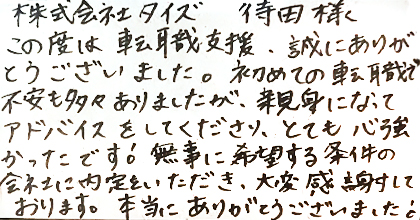 株式会社タイズ　待田様
この度は転職支援、誠にありが
とうございました。初めての転職で
不安も多々ありましたが、親身になって
アドバイスをしてくださり、とても心強
かったです！無事に希望する条件の
会社に内定をいただき、大変感謝して
おります。本当にありがとうございました。